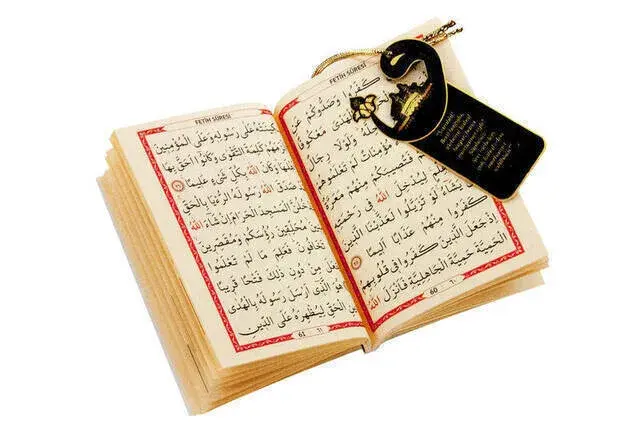 FETİH SÛRESİ
كَفَرُوا وَصَدُّوكُمْ عَنِ
الْهَدْيَ مَعْكُوفًا
وَلَوْلَا رِجَالٌ
مُؤْمِنَاتٌ لَمْ تَعْلَمُوهُمْ
فَتُصِيبَكُمْ مِنْهُمْ مَعَرَّةٌ
لِيُدْخِلَ اللّٰهُ فِي رَحْمَتِهِ
يَشَاءُ لَوْ تَزَيَّلُوا لَعَذَّبْنَا الَّذِينَ
كَفَرُوا مِنْهُمْ عَذَابًا اَلِيمًا
اِذْ جَعَلَ الَّذِينَ كَفَرُوا فِي قُلُوبِهِمُ
الْحَمِيَّةَ حَمِيَّةَ الْجَاهِلِيَّةِ فَاَنْزَلَ اللّٰهُ
60 ٦٠
FETİH SÛRESİ
سَكِينَتَهُ عَلٰى رَسُولِهِ وَعَلَى الْمُؤْمِنِينَ
وَاَلْزَمَهُمْ كَلِمَةَ التَّقْوٰى وَكَانُوا اَحَقَّ بِهَا
وَكَانَ اللّٰهُ بِكُلِّ شَيْءٍ عَلِيمًا
صَدَقَ اللّٰهُ رَسُولَهُ الرُّءْيَا بِالْحَقِّ
لَتَدْخُلُنَّ الْمَسْجِدَ الْحَرَامَ اِنْ شَاءَ اللّٰهُ
مُحَلِّقِينَ رُؤُسَكُمْ وَمُقَصِّرِينَ
تَخَافُونَ فَعَلِمَ مَا لَمْ تَعْلَمُوا
مِنْ دُونِ ذٰلِكَ فَتْحًا قَرِيبًا
هُوَ الَّذِي اَرْسَلَ رَسُولَهُ بِالْهُدٰى
الْحَقِّ لِيُظْهِرَهُ عَلَى الدِّينِ
61 ٦١